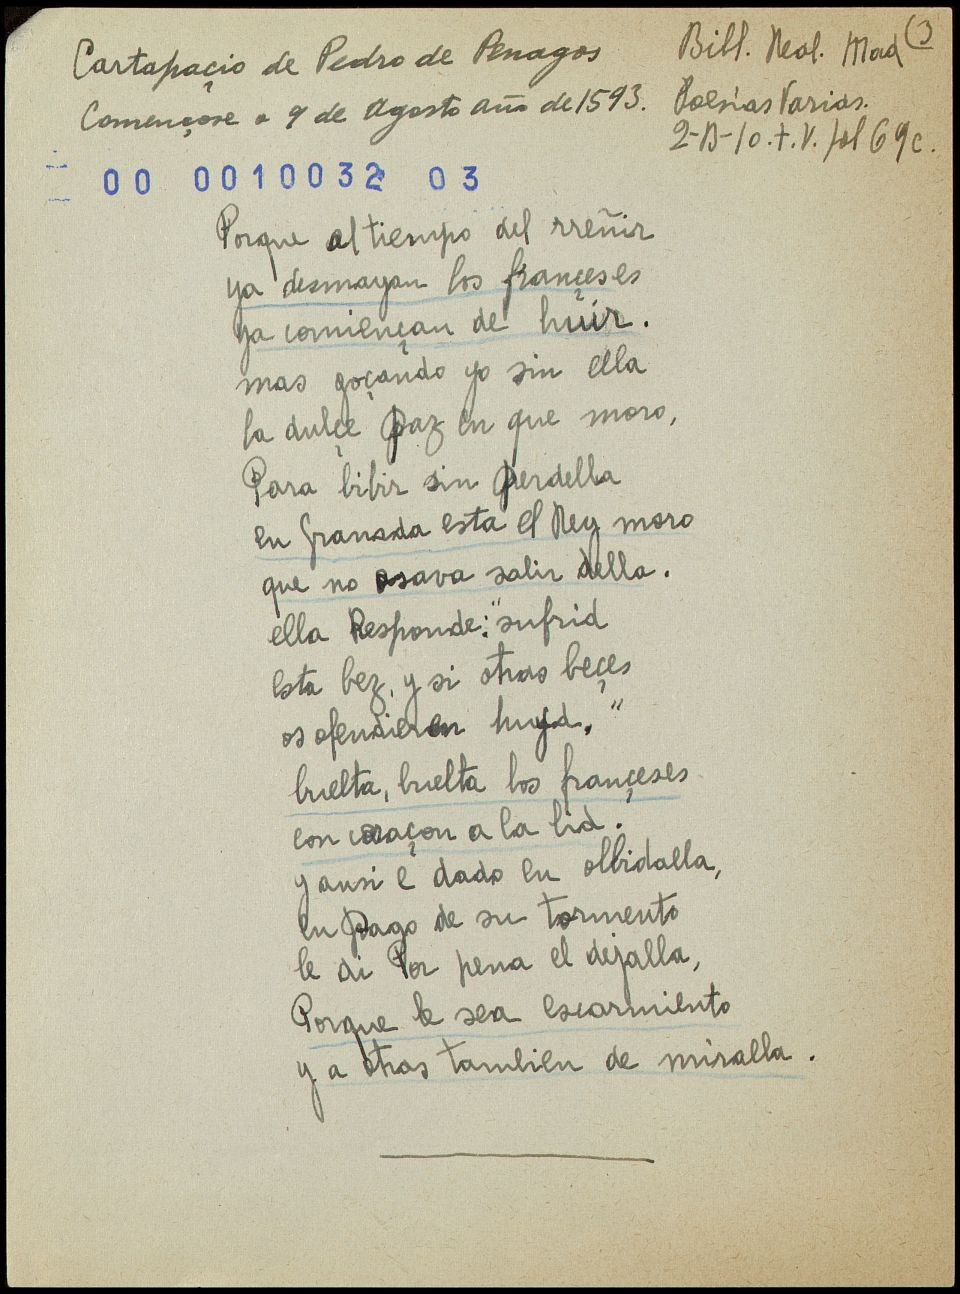 Cartapaçio de Pedro de Penagos
Començose a 9 de Agosto año de 1593.
Bibl. Real. Mad (3
Poesías Varias.
2-B-10. t. V. fol 69c.
00 0010032 03
Porque al tiempo del rreñir
ya desmayan los françeses
ya comiençan de huir.
mas goçando yo sin ella
la dulçe paz en que moro,
Para bibir sin perdella
en Granada esta el Rey moro
que no osava salir della.
ella Responde: "sufrid
esta bez, y si otras beçes
os ofendieren huyd."
buelta, buelta los françeses
con coraçon a la lid.
y ansi é dado en olbidalla,
en pago de su tormento
le di Por pena el dejalla,
Porque le sea escarmiento
y a otras tambien de miralla.